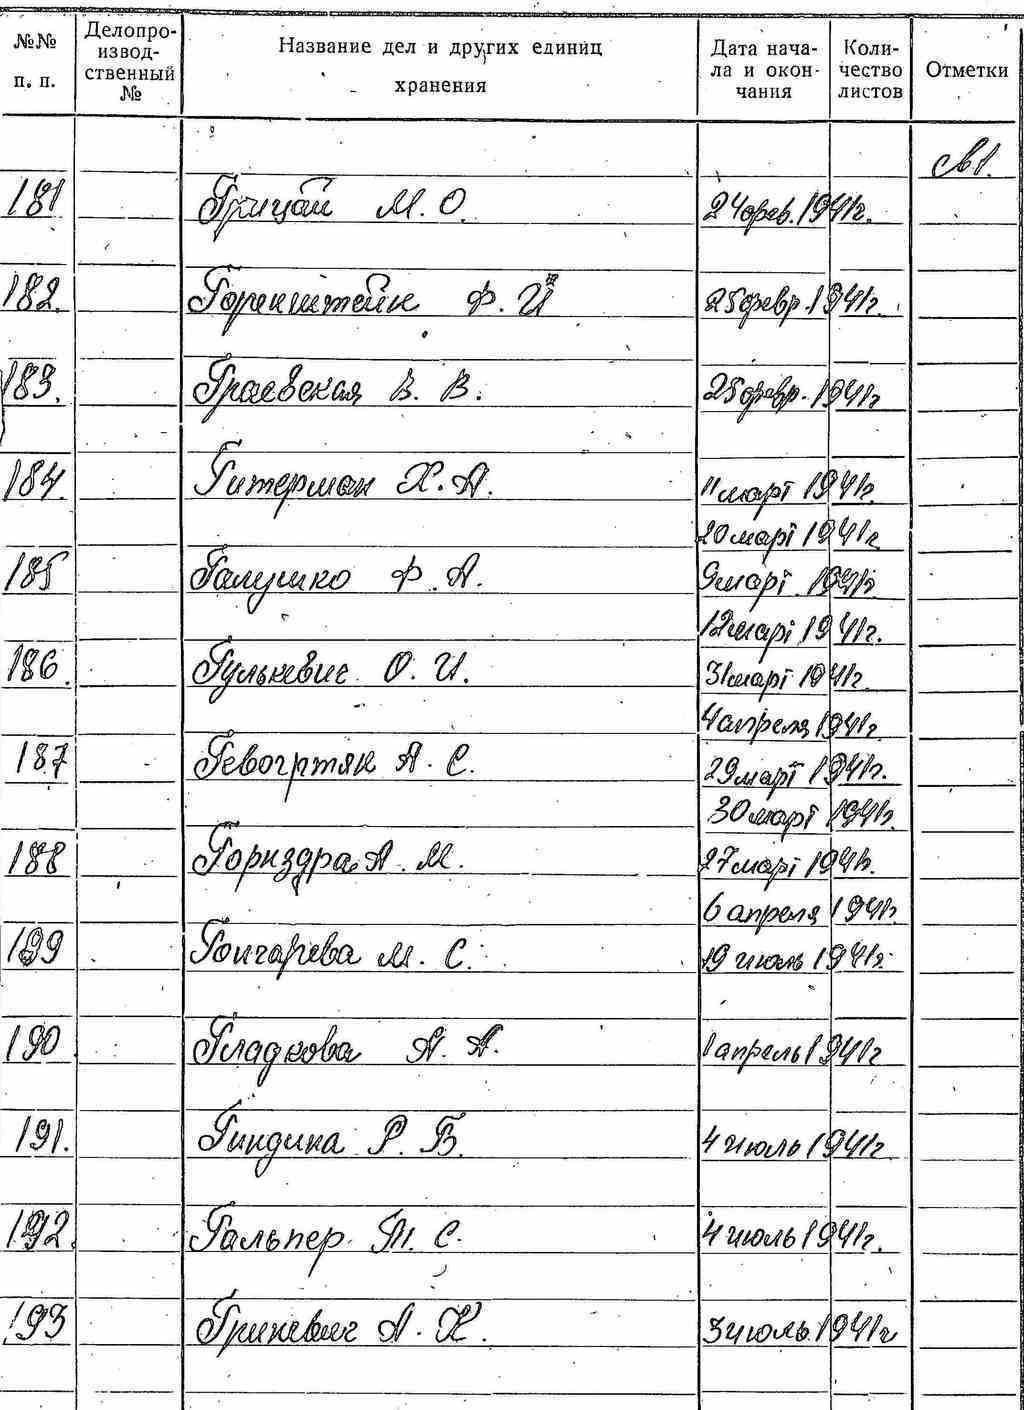 №№ п. п. Делопро- извод- ственный № Название дел и других единиц хранения Дата нача- ла и окон- чания Коли- чество листов Отметки
181 Грицай М. О. 24 фев. 1941г.
182. Горенштейн Ф. И 25 февр. 1941г.
183. Граевская В. В. 25 февр. 1941г
184. Гитерман Х. А. 11 март 1941г.
20 март 1941г
185 Галушко Ф. А. 9 март 1941г
12 март 1941г.
186. Гулькевис О. И. 31 март 1941г.
4 апреля 1941г.
187 Гевогртян А. С. 29 март 1941г.
30 март 1941г.
188 Горнздра А. М. 27 март 1941г.
6 апреля 1941г.
199 Гончарева М. С. 19 июль 1941г.
190 Гладкова А. А. 1 апрель 1941г
191. Гиндина Р. Б. 4 июль 1941г
192. Гальпер М. С. 4 июль 1941г.
193 Гриневич А. К. 3 июль. 1941г